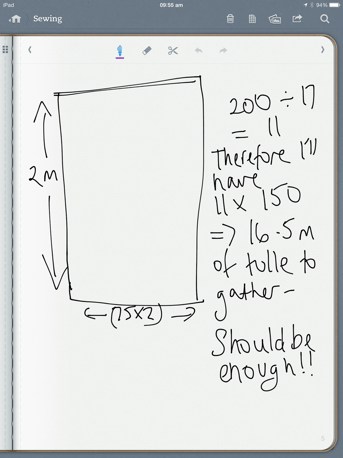 iPad
09:55 am
94%
Sewing
200 ÷ 17
= 11
Therefore I'll
have
11 x 150
=> 16.5m
of tulle to
gather -
Should be
enough!!
2m
← (75x2) →
5